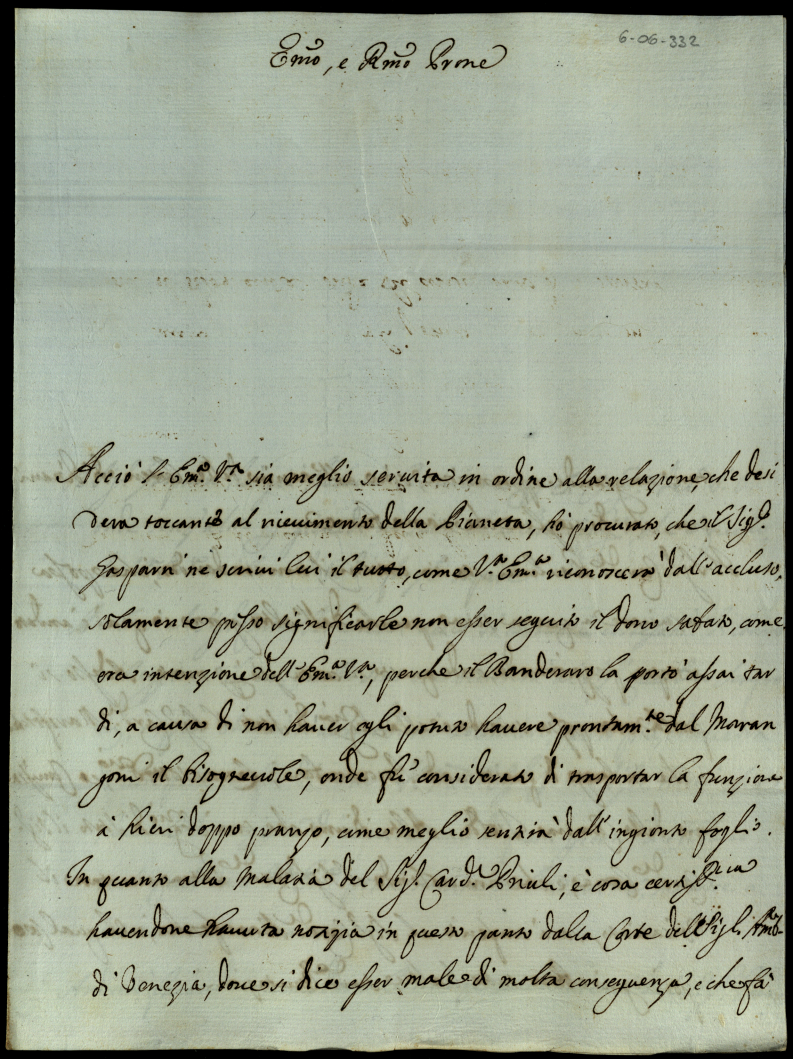 6-06-332
Em̃o, e Rm̃o Prone
Acciò l'Em.ª V.ª sia meglio servita in ordine alla relazione, che desi
dera toccante al ricevimento della Pianeta, hò procurato, che il Sig.r
Gasparri ne scrivi lui il tutto, come V.ª Em.ª riconoscerà dall'accluso,
solamente posso significarle non esser seguito il dono sabato, come
era intenzione dell'Em.ª V.ª, perche il Banderaro la portò assai tar
di, a causa di non haver egli potuto havere prontam.te dal Maran
goni il bisognevole, onde fù considerato di trasportar la funzione
à hieri doppo pranzo, come meglio sentirà dall'ingionto foglio.
In quanto alla malatia del Sig.r Card.l Priuli, è cosa certiss.ma
havendone havuta notizia in questo punto dalla Corte del Sig.r Amb.
di Venezia, dove si dice esser male di molta conseguenza, e che fà